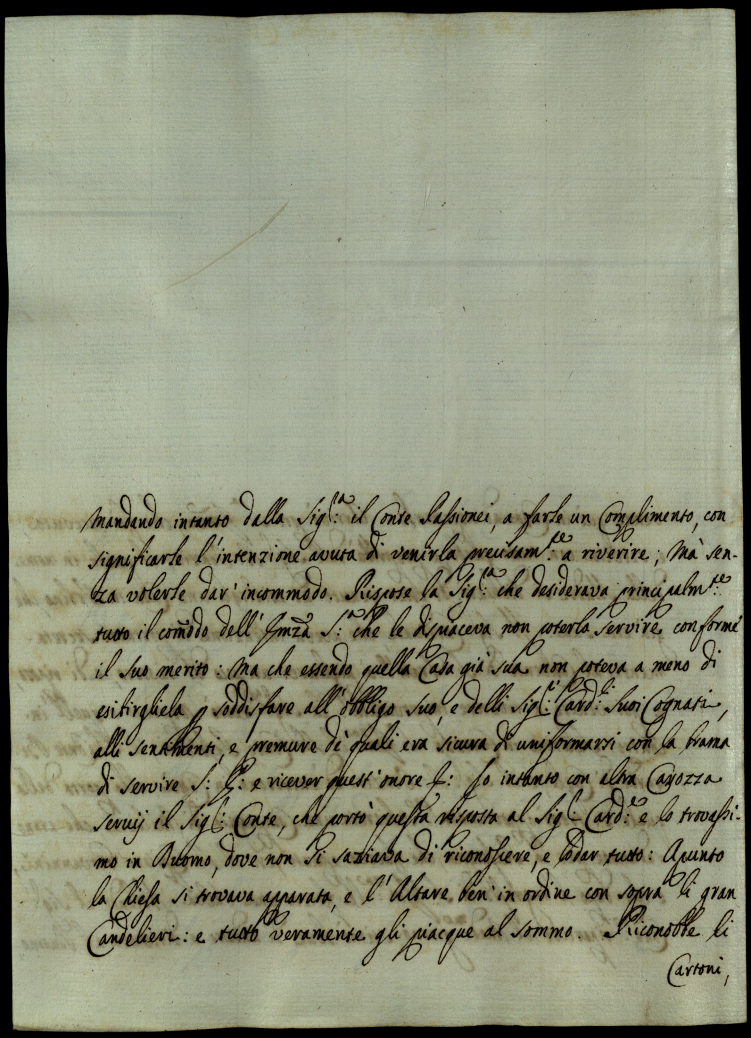 mandando intanto dalla Sig.ra il Conte Passionei, a farle un Complimento, con
significarle l'intenzione avuta di venirla precisam.te a riverire; Mà sen-
za volerle dar' incommodo. Rispose la Sig.ra che desiderava principalm.te
tutto il com̃odo dell' Em̃za S.a che le dispiaceva non poterla servire conforme
il suo merito: ma che essendo quella Casa già sua non poteva a meno di
esibirgliela p soddisfare all' obbligo suo, e delli Sig.ri Card.li suoi Cognati,
alli sentimenti, e premure dè quali era sicura di uniformarsi con la brama
di servire S: E: e ricever quest' onore &: Io intanto con altra Carozza
servij il Sig.r Conte, che portò questa risposta al Sig.r Card.le e lo trovassi-
mo in Duomo, dove non si saziava di riconoscere, e lodar tutto: Apunto
la Chiesa si trovava apparata, e l' Altare ben' in ordine con sopra li gran
Candelieri: e tutto veramente gli piacque al sommo. Riconobbe li
Cartoni,